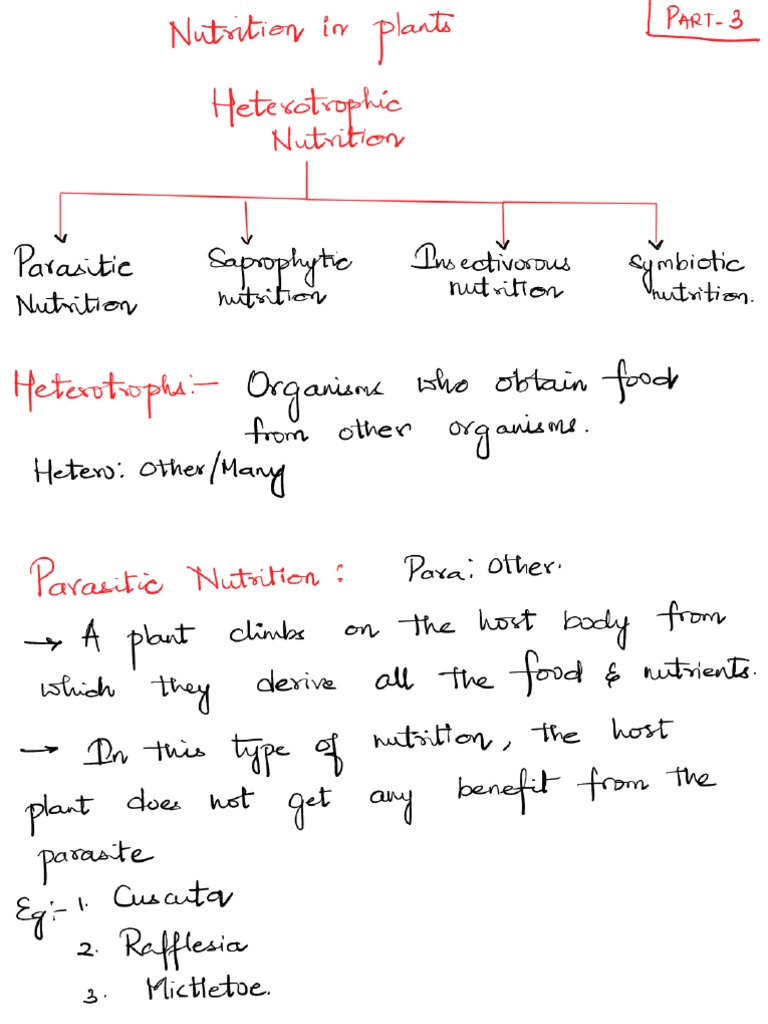 Nutrition in plants
PART-3
Heterotrophic
Nutrition
Parasitic
Nutrition
Saprophytic
nutrition
Insectivorous
nutrition
Symbiotic
nutrition.
Heterotrophs:- Organisms who obtain food
from other organisms.
Hetero: Other/Many
Parasitic Nutrition: Para: Other.
→ A plant climbs on the host body from
which they derive all the food & nutrients.
→ In this type of nutrition, the host
plant does not get any benefit from the
parasite
Eg:- 1. Cuscuta
2. Rafflesia
3. Mictletoe.